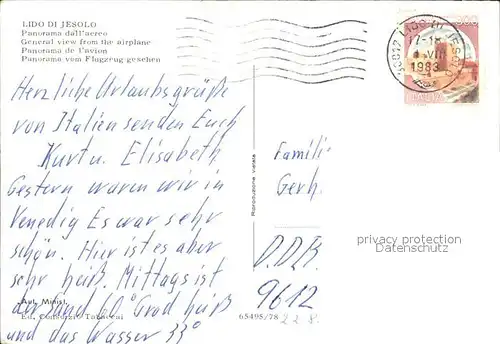 LIDO DI JESOLO
Panorama dall'aereo
General view from the airplane
Panorama de l'avion
Panorama vom Flugzeug gesehen
LIDO DI JESOLO
1983
Herzliche Urlaubsgrüße
von Italien senden Euch
Kurt u. Elisabeth
Gestern waren wir in
Venedig Es war sehr
schön. Hier ist es aber
sehr heiß. Mittags ist
der Sand 60° Grad heiß
und das Wasser 33°
Aut. Minist.
Ed.
65495/78
Riproduzione vietata
Famili
Gerh.
D.D.R.
9612
privacy protection
Datenschutz
22.8.